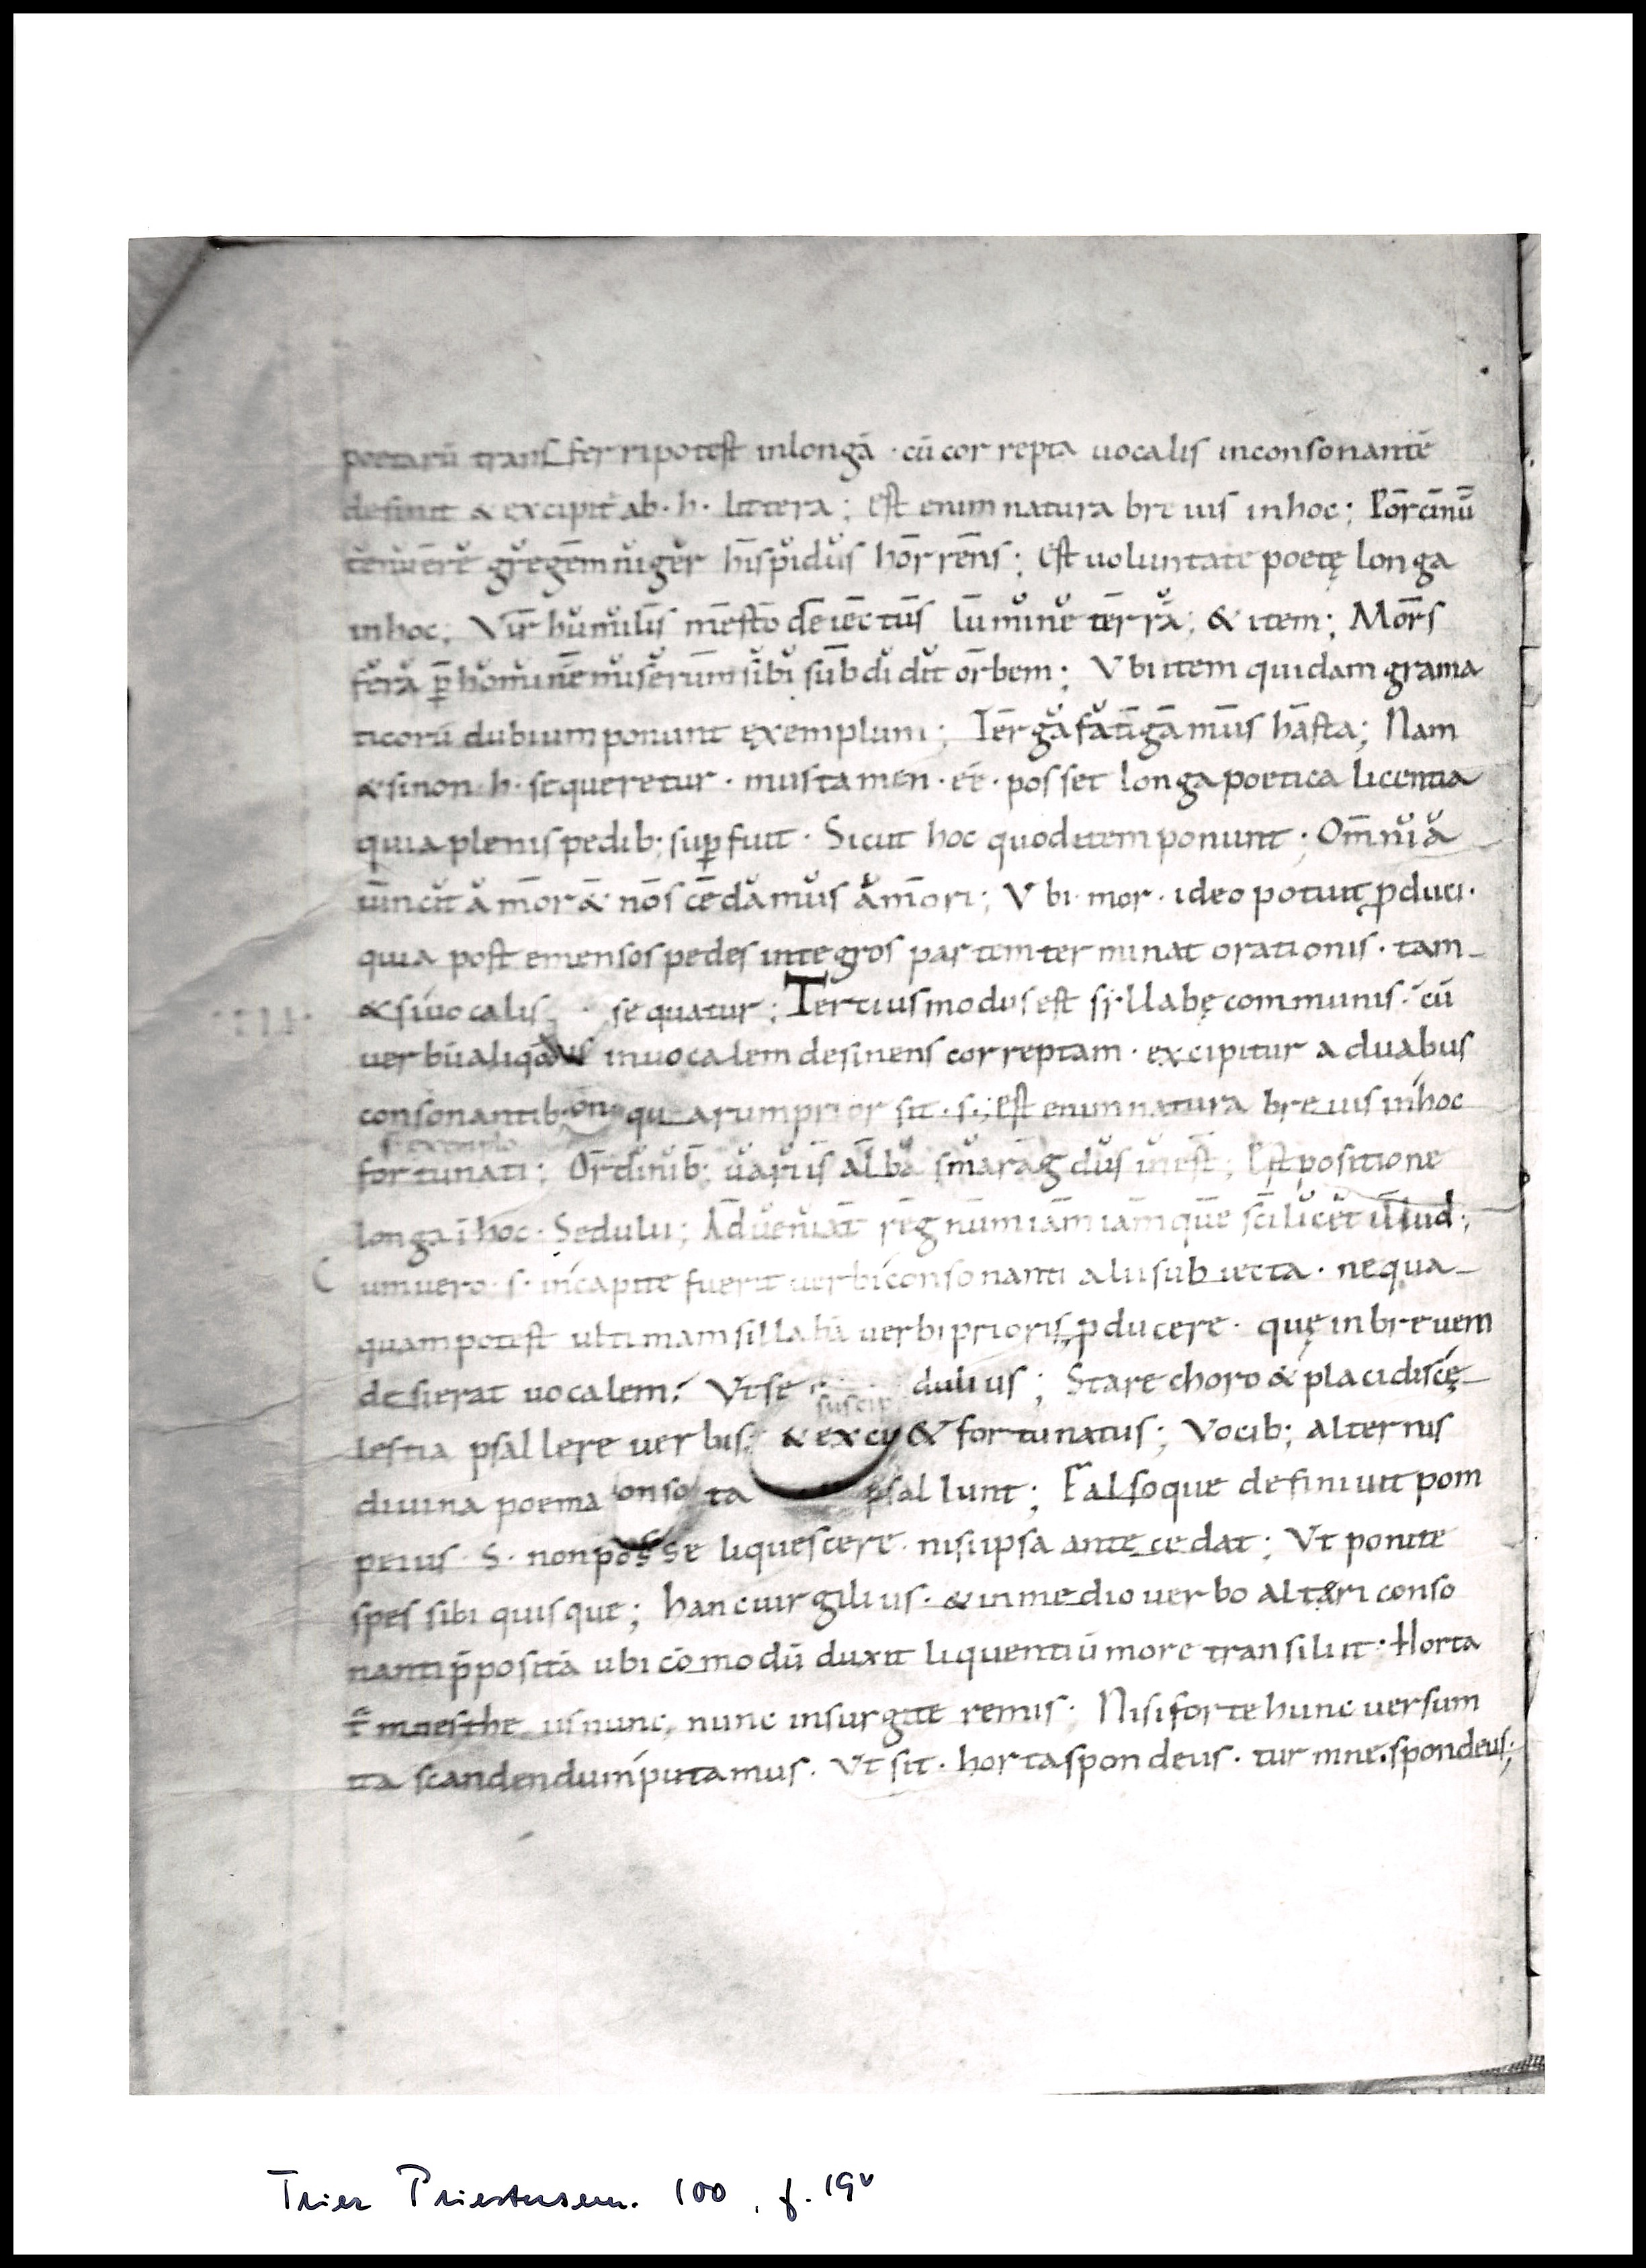 poetarū transferri potest inlongā · cū correpta uocalis inconsonantē
desinit & excipit̄ ab · h · littera ; Est enim natura breuis inhoc ; Porcinū
tenuere gregem niger hispidus horrens ; Est uoluntate poetę longa
inhoc ; Vir humilis mesto deiectus lumine terrā ; & item ; Mors
fera p̄ homine miserum sibi subdidit orbem ; Vbi item quidam grama
ticorū dubium ponunt exemplum ; Terga fatigamus hasta ; Nam
& sinon · h · sequeretur · mus tamen · eē · posset longa poetica licentia
quia plenis pedib; suꝑfuit · Sicut hoc quod item ponunt ; Omnia
uincit amor & nos cedamus amori ; Vbi · mor · ideo potuit ꝓduci ·
quia post emensos pedes integros partem terminat orationis · tam
& siuocalis sequatur ; Tertius modus est sillabę communis · cū
uerbū inuocalem desinens correptam · excipitur a duabus
consonantib; quarum prior sit · s · ; Est enim natura breuis inhoc
fortunati ; Ordinib; uariis alba smaragdus inest ; Est positione
longa ī hoc · Sedulii ; Adueniat regnum iam iamque scilicet illud ;
C um uero · s · incapite fuerit uerbi consonanti alii subiecta · nequa
quam potest ultimam sillabā uerbi prioris ꝓducere · quę in breuem
desierat uocalem ; Vt se dulius ; Stare choro & placidis cę
lestia psallere uerbis ; & fortunatus ; Vocib; alternis
diuina poema ta psallunt ; Falsoque definiuit pom
peius · S · non posse liquescere · nisi ipsa antecedat ; Vt ponite
spes sibi quisque ; hanc uirgilius · & in medio uerbo altari conso
nanti p̄positā ubi cōmodū duxit liquentiū more transiluit · Horta
t̄ mnesthe us nunc, nunc insurgite remis · Nisi forte hunc uersum
ita scandendum putamus · Vt sit · horta spondeus · tur mne · spondeus ;
Trier Priestersem. 100, f. 19v